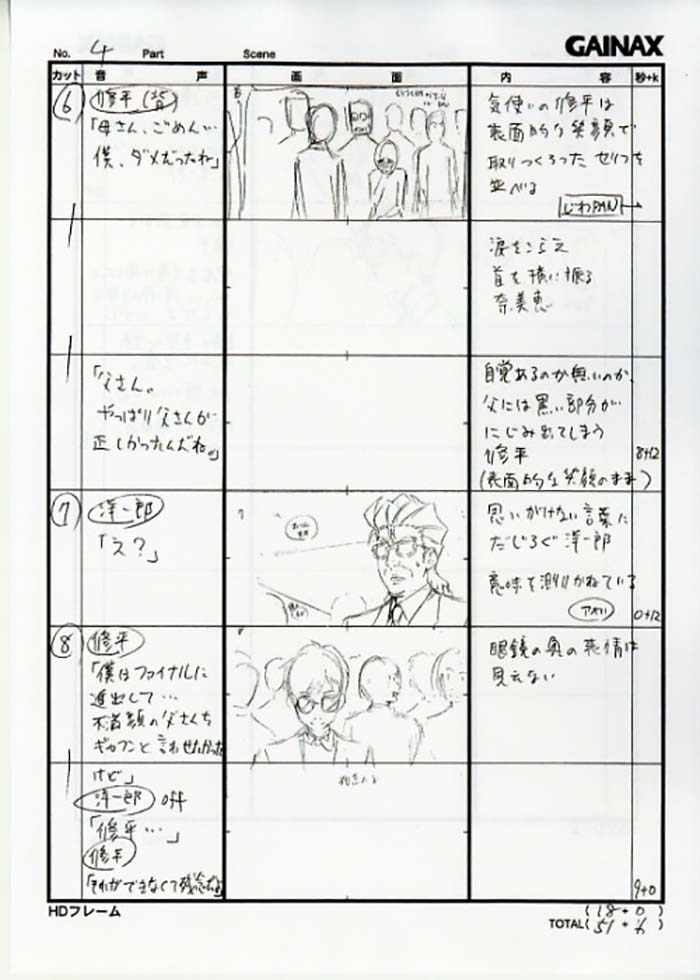 No. 4 Part Scene
GAINAX
カット 音 声 画 面 内 容 秒+k
⑥ 修平(背)
「母さん、ごめん…
僕、ダメだったね」
気使いの修平は
表面的な笑顔で
取りつくろった セリフを
並べる
じわPAN
涙をこらえ
首を横に振る
奈美恵
「父さん。
やっぱり父さんが
正しかったんだね。」
自覚あるのか無いのか、
父には黒い部分が
にじみ出てしまう
修平
(表面的な笑顔のまま)
8+12
⑦ 洋一郎
「え?」
思いがけない言葉に
だじろぐ 洋一郎
意味を測りかねている
0+12
⑧ 修平
「僕はファイナルに
進出して…
不首顔の父さんも
ギャフンと言わせたかった
けど」
洋一郎 off
「修平…」
修平
「それができなくて残念だよ」
眼鏡の奥の表情は
見えない
9+0
HDフレーム
(18+0)
TOTAL(51+6)